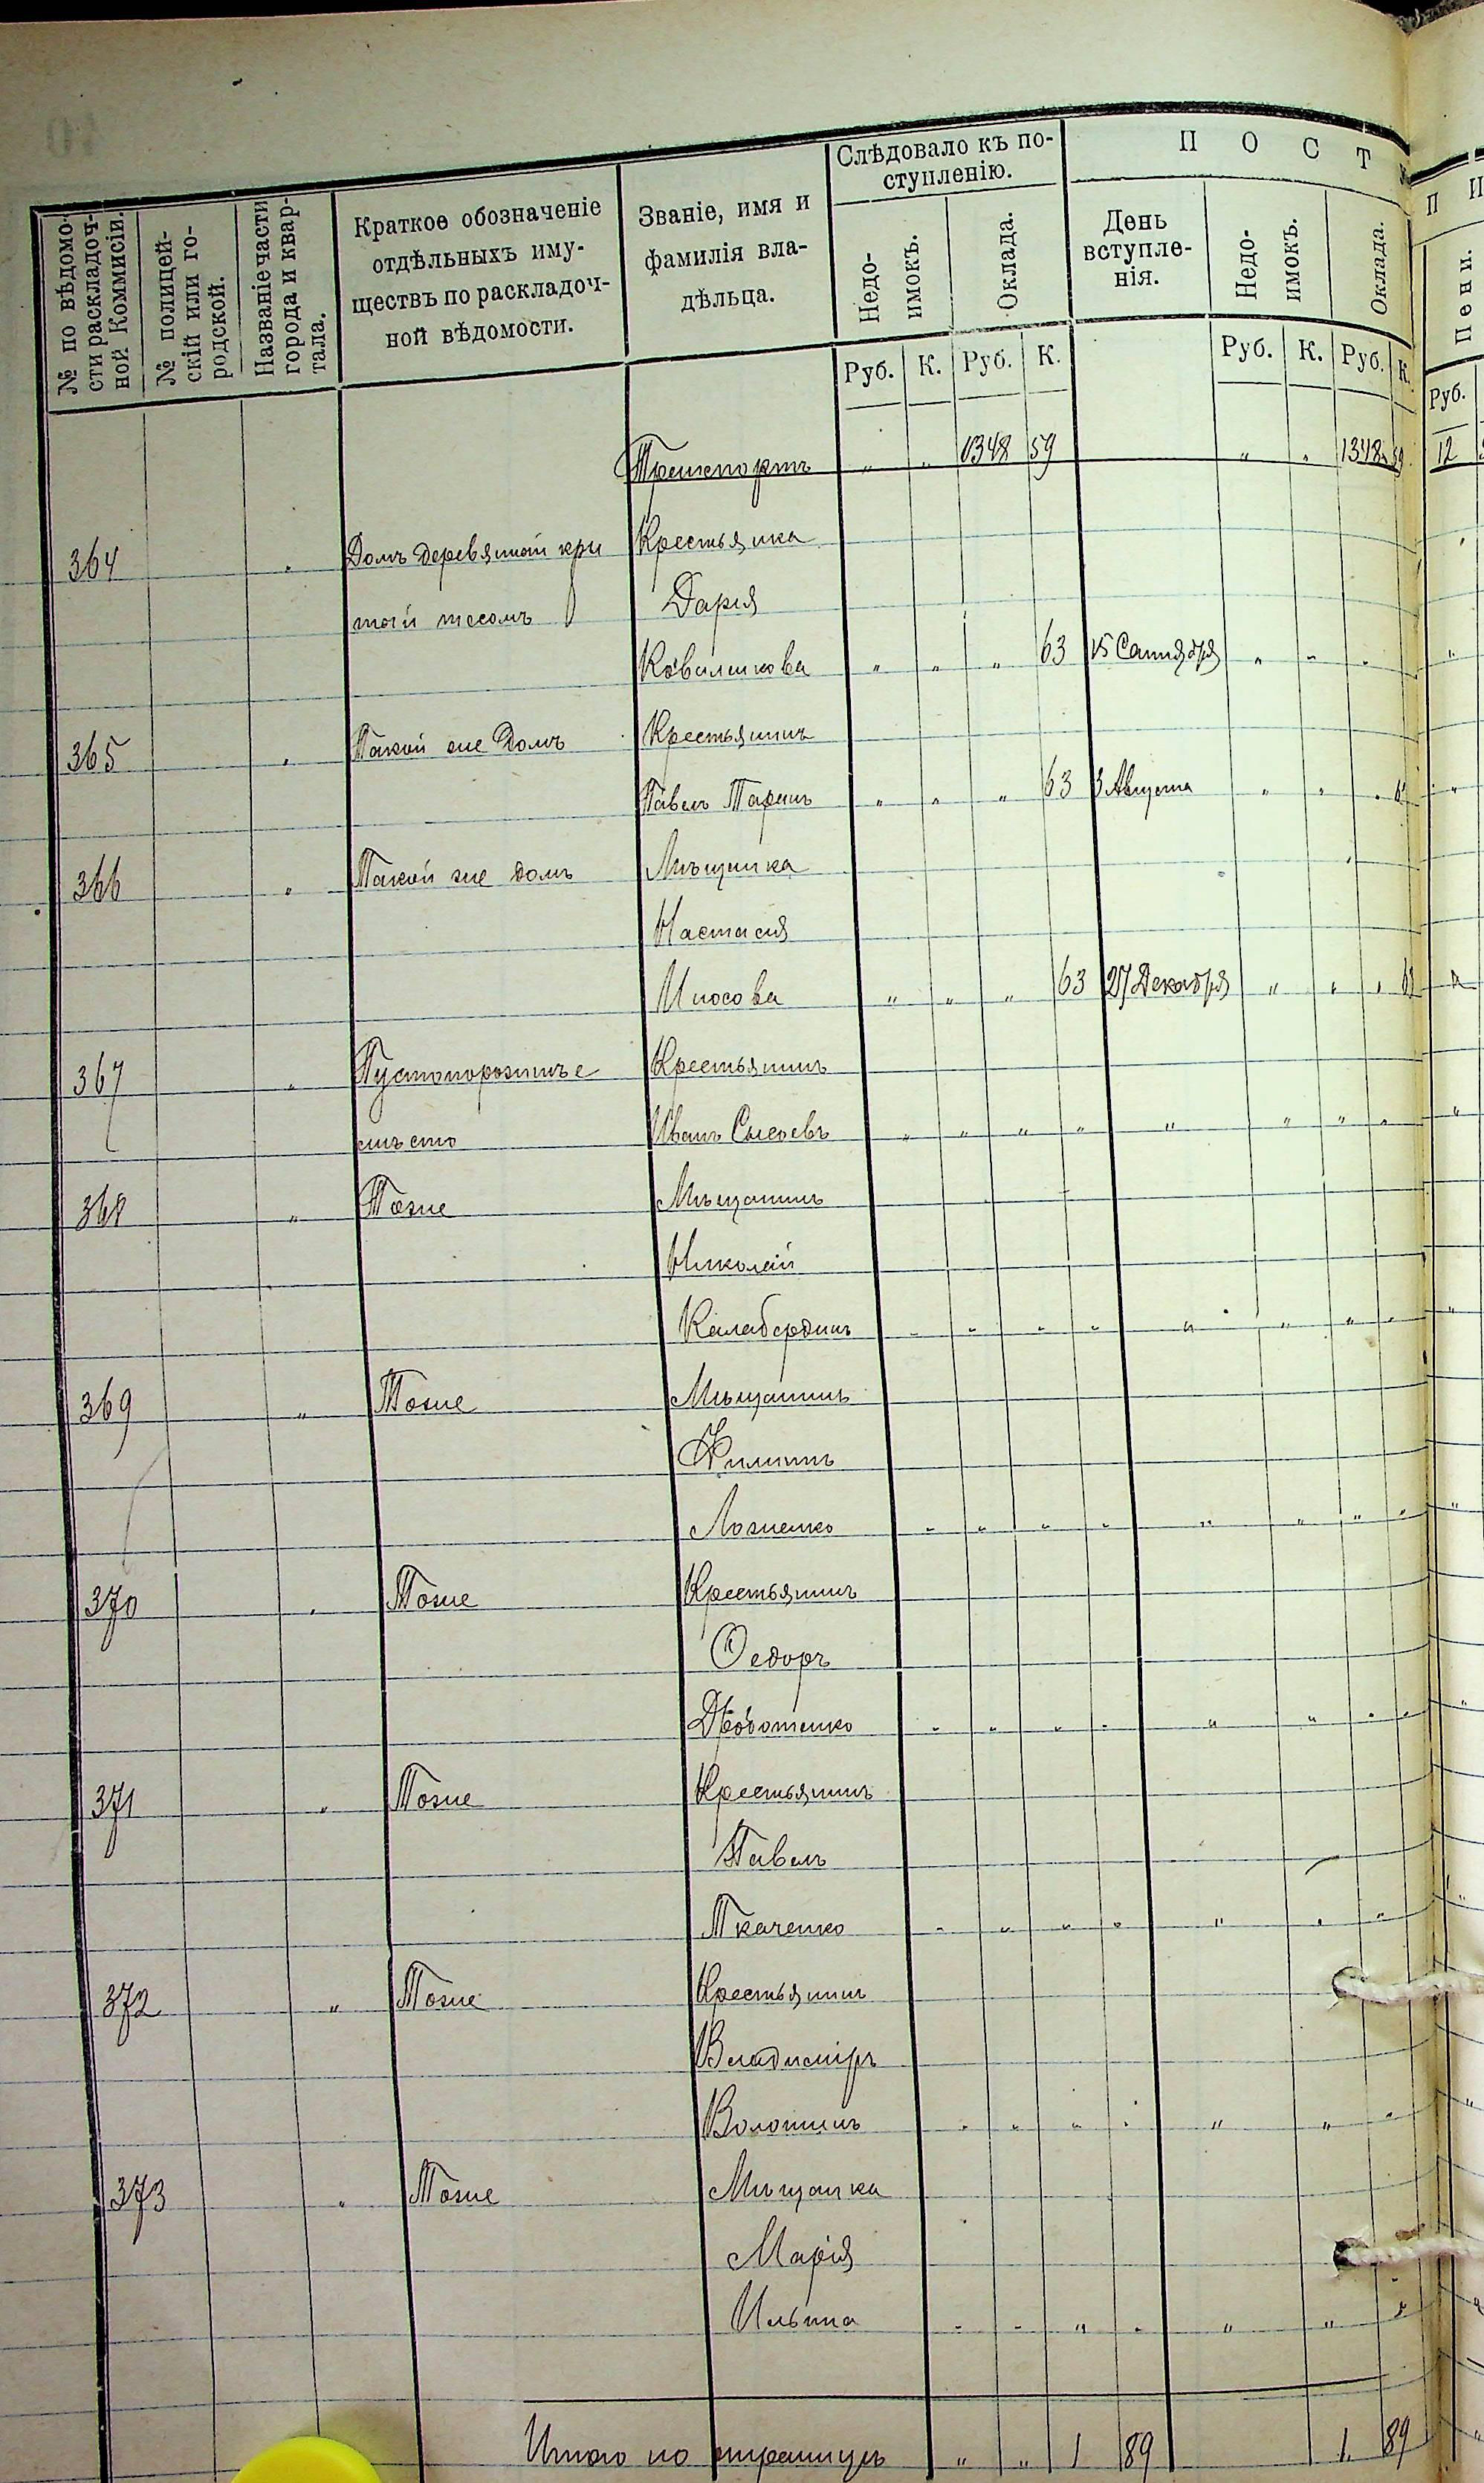 № по вѣдомости раскладочной Коммисіи.
№ полицейскій или городской.
Названіе части города и квартала.
Краткое обозначеніе
отдѣльныхъ иму-
ществъ по раскладоч-
ной вѣдомости.
Званіе, имя и
фамилія вла-
дѣльца.
Слѣдовало къ по-
ступленію.
Недо-
имокъ.
Оклада.
П О С Т
День
вступле-
нія.
Недо-
имокъ.
Оклада.
П
Пени.
Руб. К. Руб. К. Руб. К. Руб. К. Руб.
Транспортъ " " 1348 59 " " 1348 59 12
364 " Домъ деревяной кры Крестьянка
той тесомъ Дарія
" " " 63 15 Сентября " " "
365 " Такой же домъ Крестьянинъ
Павелъ " " " 63 3 Августа " " "
366 " Такой же домъ Мѣщанка
Настасія
" " " 63 27 Декабря " " " 63
367 " Пустопорожнѣе Крестьянинъ
мѣсто Иванъ Сысоевъ " " " " " " " "
368 " Тоже Мѣщанинъ
Николай
Калабердинъ " " " " " " " "
369 " Тоже Мѣщанинъ
Филиппъ
Ложенко " " " " " " " "
370 " Тоже Крестьянинъ
Ѳедоръ
" " " " " " " "
371 " Тоже Крестьянинъ
Павелъ
Ткаченко " " " " " " "
372 " Тоже Крестьянинъ
Владиміръ
Волошинъ " " " " " " "
373 " Тоже Мѣщанка
Марія
Ильина " " " " " " "
Итого по страницѣ " " 1 89 1 89